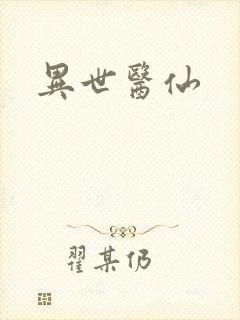 異世醫仙
翟某仍